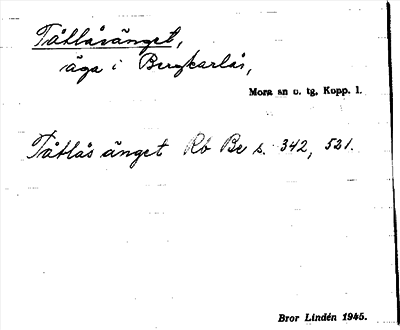 Tåtlåsänget,
äga i Bergkarlås,
Mora sn o. tg, Kopp. l.
Tåtlås änget Rö Be s. 342, 521.
Bror Lindén 1945.